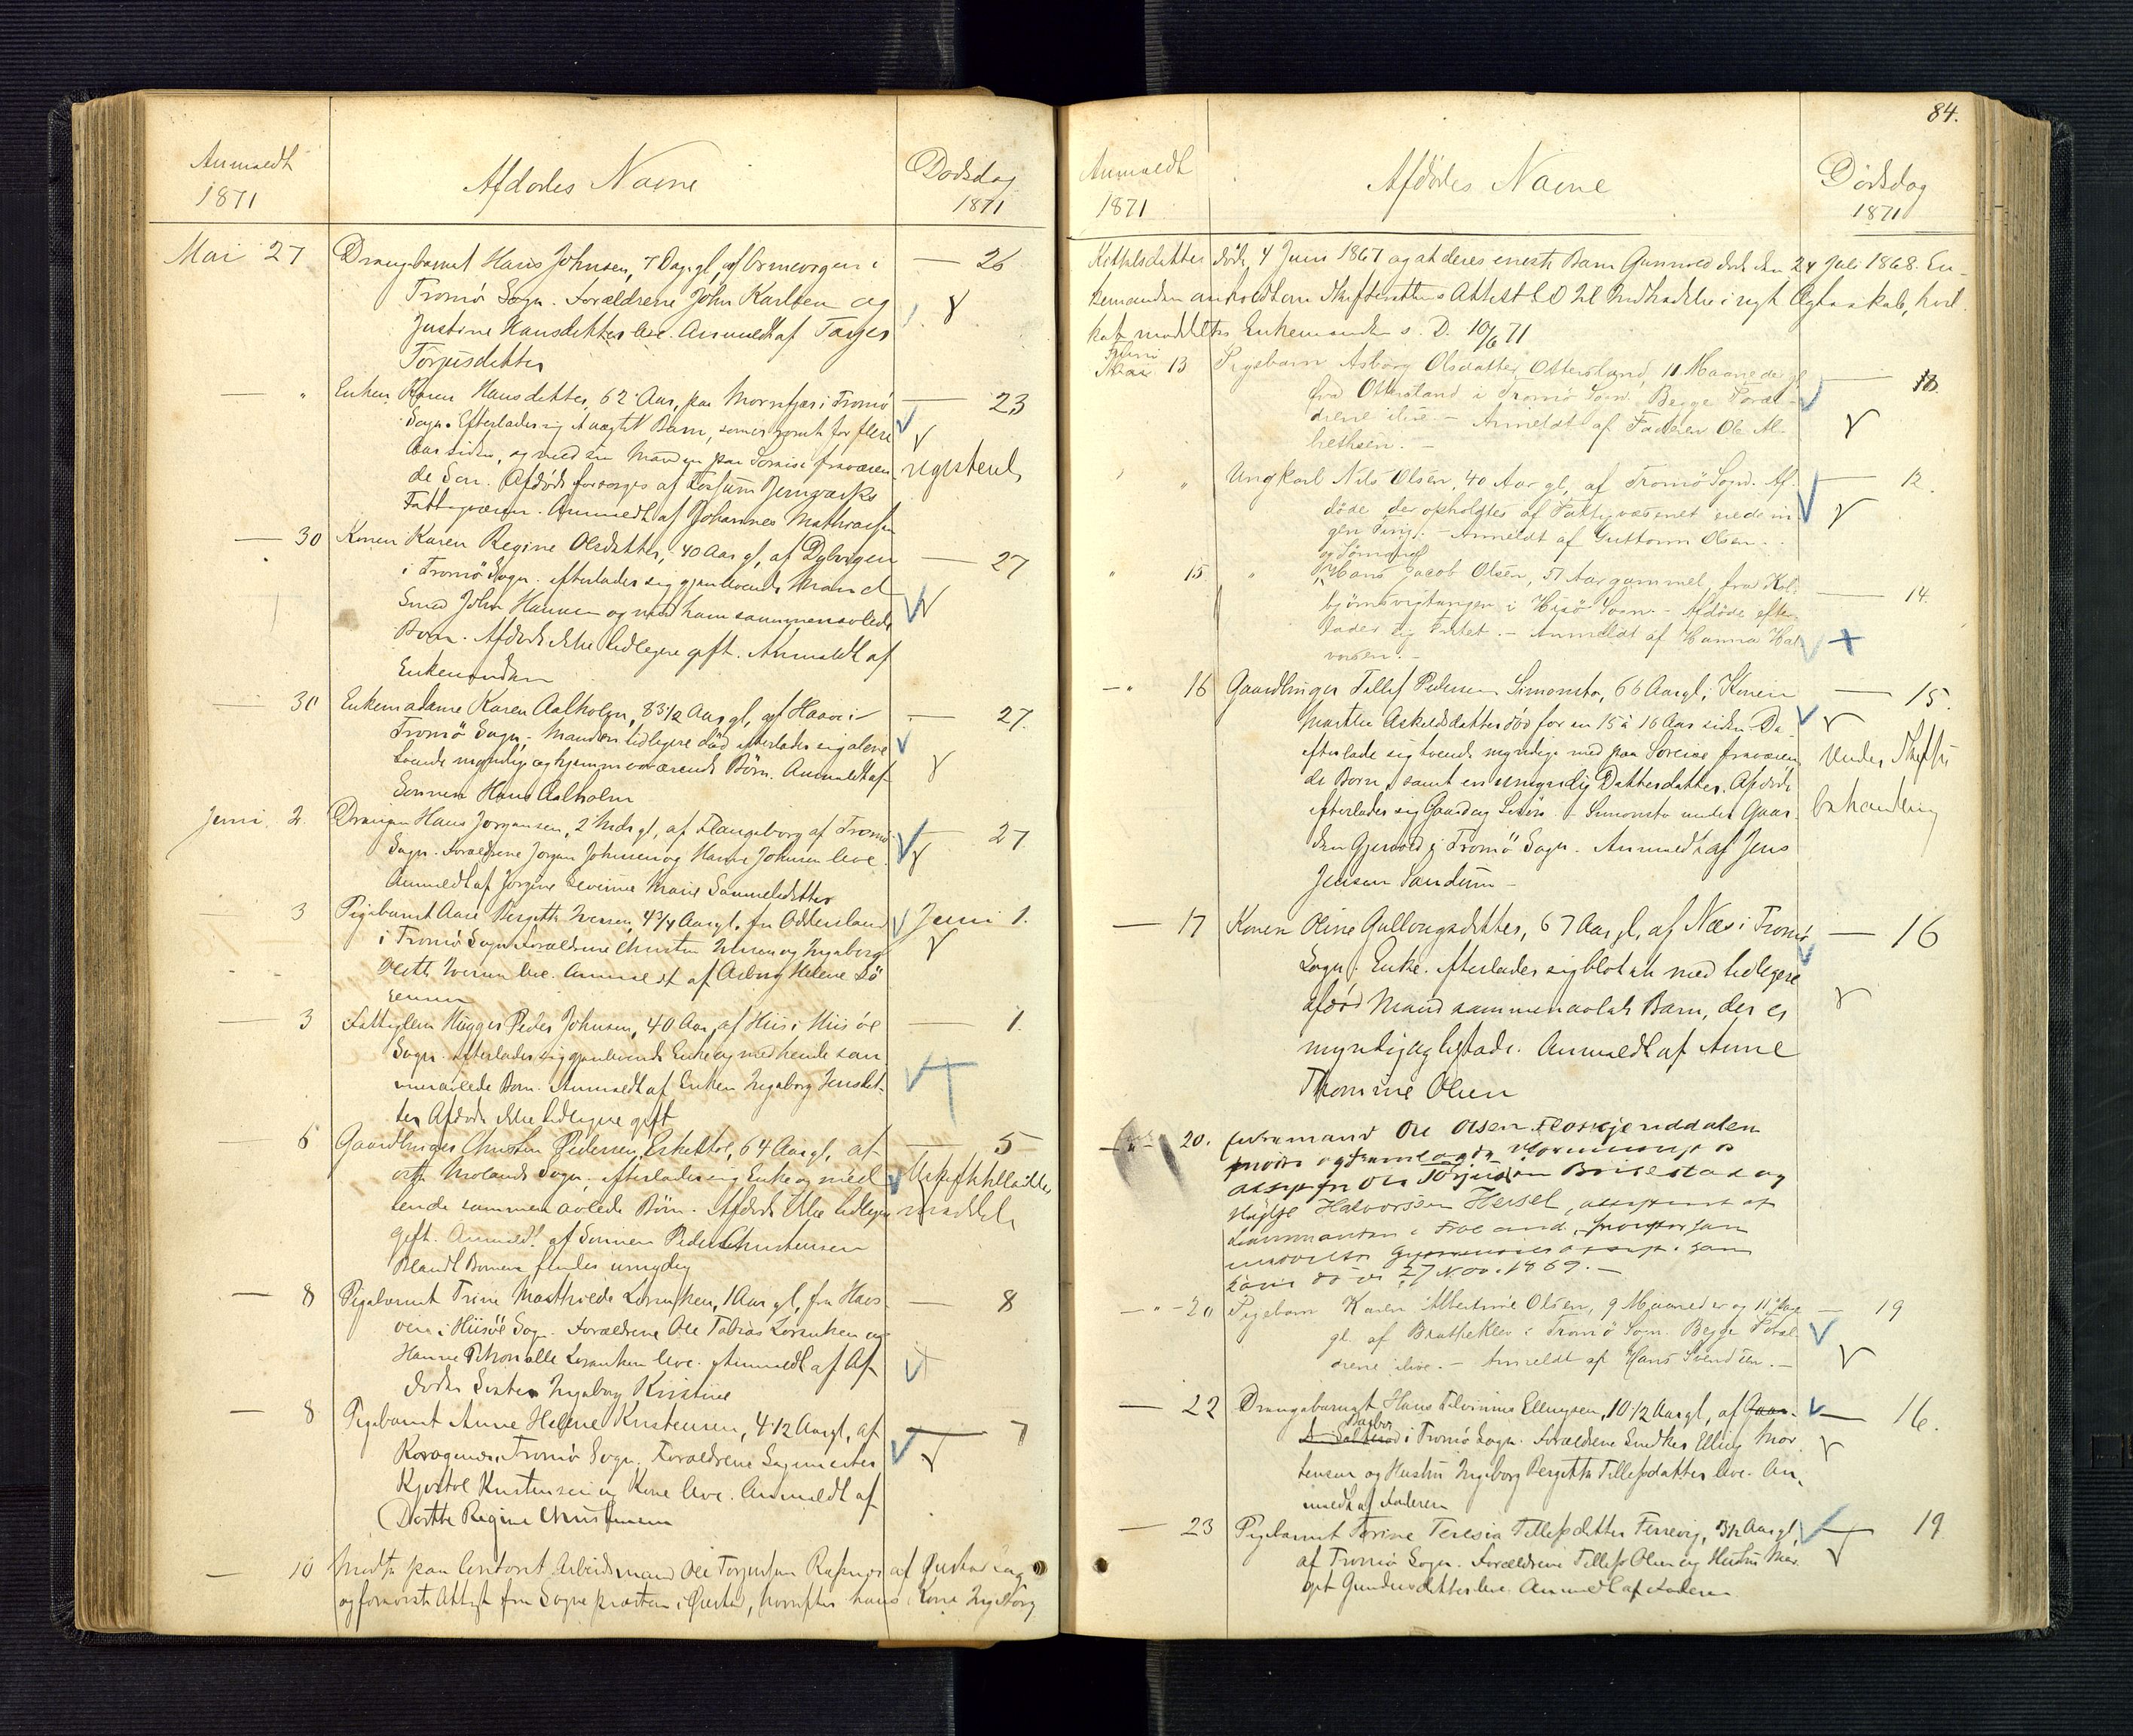 Anmeldt
1871
Afdødes Navne
Dødsdag
1871
Mai 27 Drengebarnet Hans Johnsen, 7 Dage gl, af Ormevigen i — 26
Tromø Sogn. Forældrene John Karlsen og
Justine Hansdatter leve. Anmeldt af Tarjer
Torjusdatter
— " Enken Karen Hansdatter, 62 Aar, paa i Tromø — 23
Sogn. Efterlader sig Barn, som er for flere
Aar siden, og med sin Mand en paa fraværen-
de Søn. Afdøde forsørges af Jernværks registeret
Fattigvæsen. Anmeldt af Johannes Mathiassen
— 30 Konen Karen Regine Olsdatter, 40 Aar gl, af Dybvigen — 27
i Tromø Sogn. efterlader sig gjenlevende Mand
Smed John Hansen og med ham sammenavlede
Børn. Afdøde ikke tidligere gift. Anmeldt af
Enkemanden
— 30 Enkemadame Karen Aalholm, 83 1/2 Aar gl, af Haave i — 27.
Tromø Sogn. Manden tidligere død efterlader sig alene
levende myndige og hjemmeværende Børn. Anmeldt af
Sønnen Hans Aalholm
Juni 2. Drengen Hans Jørgensen, 2 Mdr gl, af Flangeborg af Tromø — 27
Sogn. Forældrene Jørgen Johnsen og Hanne Johnsen leve.
Anmeldt af Jørgine Severine Marie Samuelsdatter
— 3 Pigebarnet Aase Bergitte Iversen, 4 3/4 Aar gl. fra Oddersland Juni 1.
i Tromø Sogn Forældrene Christen Iversen og Ingeborg
Iversen leve. Anmeldt af Asborg Helene Sö
rensen
— 3 Fattiglem Hugger Peder Johnsen, 40 Aar, af Hiis i Hiisöe — 1.
Sogn. efterlader sig gjenlevende Enke og med hende sam
menavlede Børn. Anmeldt af Enken Ingeborg Jensdat-
ter Afdøde ikke tidligere gift
— 6 Gaardbruger Christen Pedersen Eskedal, 64 Aar gl, af — 5
østre Molands Sogn. efterlader sig Enke og med Uskiftetilladelse
hende sammenavlede Børn. Afdøde ikke tidligere meddelt
gift. Anmeldt af Sønnen Peder Christensen
Blandt Børnene findes umyndig
— 8 Pigebarnet Trine Mathilde Lorentzen, 1 Aar gl, fra Havs- — 8
i Hiisöe Sogn. Forældrene Ole Tobias Lorentzen og
Hanne Petronelle Lorentzen leve. Anmeldt af Af-
dødes Søster Ingeborg Kristine
— 8 Pigebarnet Anne Helene Kristensen, 4 1/2 Aar gl, af — 7
i Tromø Sogn. Forældrene Sagmester
Kristensen og Kone leve. Anmeldt af
Dorthe Regine Christensen
— 10 Mødte paa Contoret Arbeidsmand Ole Torjussen af Øiestad Sogn
og foreviste Attest fra Sognepræsten i Øiestad, hvorefter hans Kone Ingeborg
84.
Anmeldt
1871
Afdødes Navne
Dødsdag
1871
Kittelsdatter døde 4 Juni 1867 og at deres eneste Barn Gunvald døde den 24 Juli 1868. En-
kemanden anmeldte om Skifterettens Attest til Indtrædelse i nyt Ægteskab, hvil-
ket meddeltes Enkemanden s. D. 10/6 71
Juni 13 Pigebarn Asborg Olsdatter Otterstand, 11 Maaneder gl — 13.
fra Otterstand i Tromø Sogn. Begge Foræl-
drene ilive. — Anmeldt af Faderen Ole Al-
bretsen. —
" Ungkarl Nils Olsen, 40 Aar gl, af Tromø Sogn. Af- — 12.
døde, der opholdtes af Fattigvæsenet eiede in-
gen Ting. — Anmeldt af Guttorm Olsen.
" 15. " og Sømand
Hans Jacob Olsen, 51 Aar gammel, fra Kol- — 14.
bjørnsvigtangen i Hisö Sogn. — Afdøde efter-
lader sig Intet. — Anmeldt af Hanna Hal-
vorsen. —
— " 16 Gaardbruger Tellef Pedersen Simonstø, 66 Aar gl; Konen — 15.
Marthe Askildsdatter død for en 15 à 16 Aar siden. De
efterlade sig levende myndige med paa Søreise fraværen Under Skifte
de Børn, samt en umyndig Datterdatter. Afdøde
efterlader sig Gaard og Løsøre. — Simonstø under Gaar- behandling
den Gjervold i Tromö Sogn. Anmeldt af Jens
Jensen Sandum —
— 17 Konen Oline Gullovgsdatter, 67 Aar gl, af Næs i Tromø — 16
Sogn. Enke. efterlader sig blot et med tidligere
afdød Mand sammenavlet Barn, der er
myndig og tilstede. Anmeldt af Anne
Thomine Olsen
— " 20. Enkemand Ole Olsen
mødte og fremlagde
Ole Torjussen og
Halvorssen Heisel, af
Lensmanden i Froland, hvorefter hans
hans
Kone døde 27 Nov. 1869. —
— " — 20 Pigebarn Karen Albertine Olsen, 9 Maaneder og 11 Dage — 19
gl. af Bratteklev i Tromø Sogn. Begge Foræl-
drene ilive. — Anmeldt af Hans Svendsen. —
— 22 Drengebarnet Hans Silvinius Ellingsen, 10 1/2 Aar gl, af Gaar- — 16.
i Tromø Sogn. Forældrene Snedker Elling Mor-
tensen og Hustru Ingeborg Bergitte Tellefsdatter leve. An-
meldt af Faderen
— 23 Pigebarnet Torine Teresia Tellefsdatter Færevig, 3 1/2 Aar gl, — 19
af Tromø Sogn. Forældrene Tellef Olsen og Hustru Mar-
get Gundersdatter leve. Anmeldt af Faderen